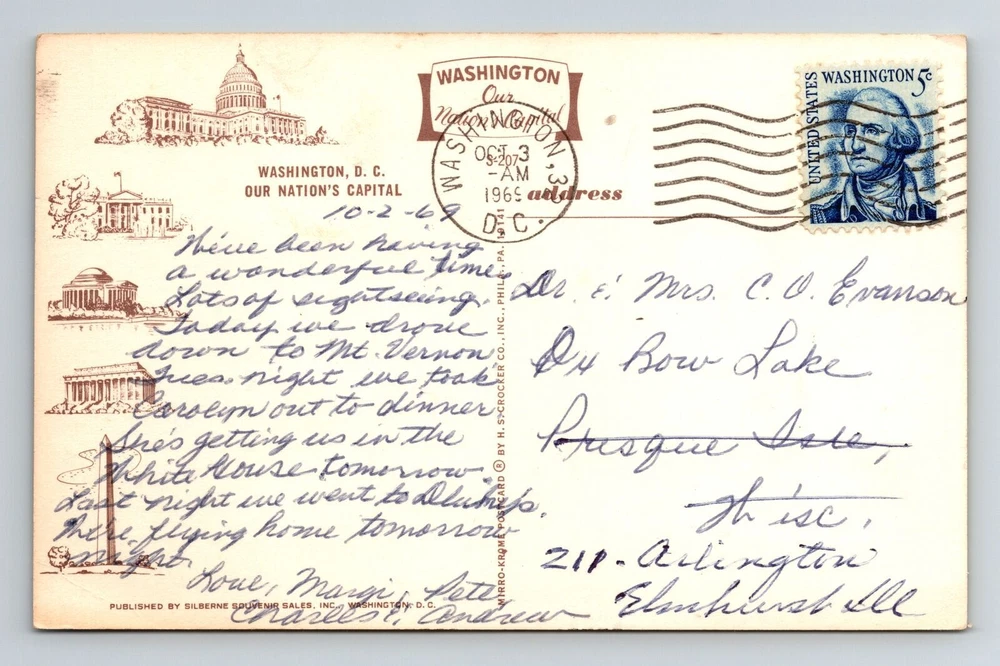 WASHINGTON
Our
Nation's Capital
S-207
WASHINGTON, D.C.
OCT 3
-AM
1969
UNITED STATES
WASHINGTON 5c
WASHINGTON, D. C.
OUR NATION'S CAPITAL
address
10-2-69
We've been having
a wonderful time.
Lots of sightseeing.
Today we drove
down to Mt. Vernon
Tues. night we took
Carolyn out to dinner.
She's getting us in the
White House tomorrow
Last night we went to
We're flying home tomorrow
night.
Love, Margi, Pete
Charles & Andrew
PUBLISHED BY SILBERNE SOUVENIR SALES, INC., WASHINGTON, D. C.
MIRRO-KROME POSTCARD ® BY H. S. CROCKER CO., INC., PHILA., PA. 19141
Dr. & Mrs. C. O. Evanson
Ox Bow Lake
Presque Isle,
Wisc.
211 - Arlington
Elmhurst Ill